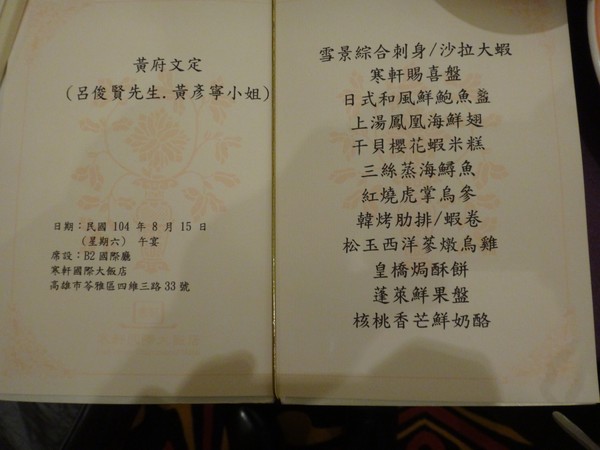 黃府文定
(呂俊賢先生.黃彥寧小姐)
日期：民國 104 年 8 月 15 日
(星期六) 午宴
席設：B2 國際廳
寒軒國際大飯店
高雄市苓雅區四維三路 33 號
雪景綜合刺身/沙拉大蝦
寒軒賜喜盤
日式和風鮮鮑魚盞
上湯鳳凰海鮮翅
干貝櫻花蝦米糕
三絲蒸海鱘魚
紅燒虎掌烏參
韓烤肋排/蝦卷
松玉西洋蔘燉烏雞
皇橋焗酥餅
蓬萊鮮果盤
核桃香芒鮮奶酪